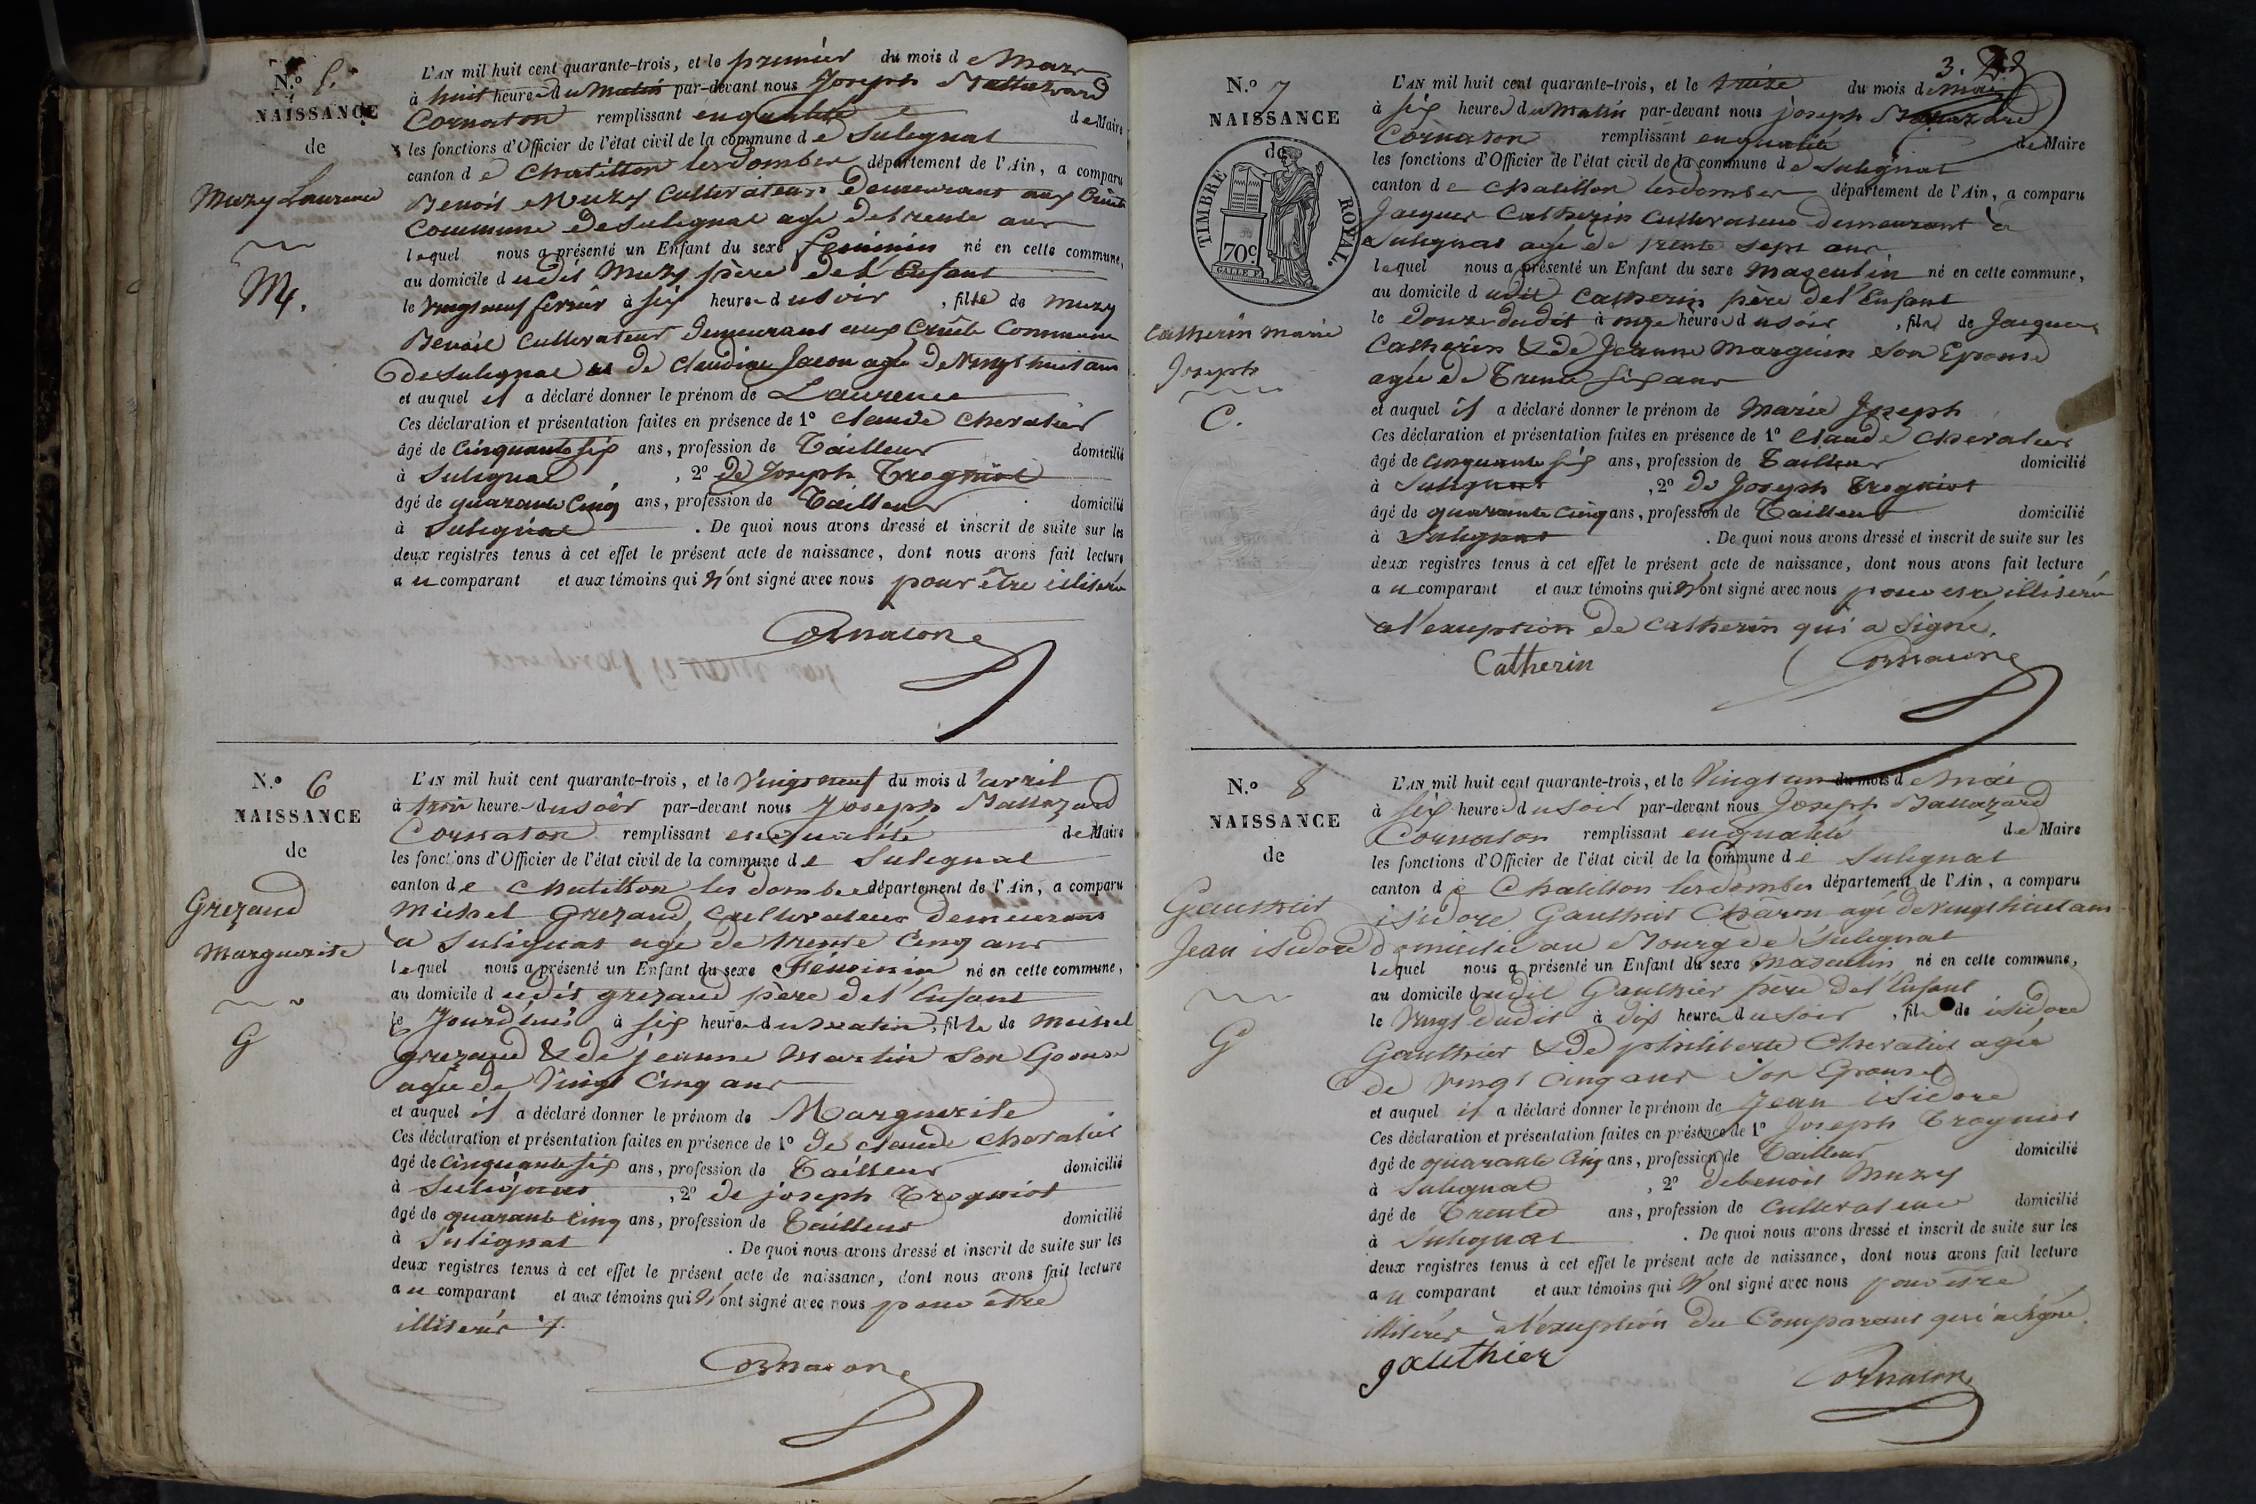 N.o 5.
NAISSANCE
de
Muzy Laurence
M.
L'AN mil huit cent quarante-trois, et le premier du mois de Mars
à huit heures du Matin par-devant nous Joseph Baltazard
Cornaton remplissant en qualité de Maire
les fonctions d'Officier de l'état civil de la commune de Sulignat
canton de Chatillon les dombes département de l'Ain, a comparu
Benoit Muzy Cultivateur demeurant aux Cruets
Commune de Sulignat agé de trente ans
lequel nous a présenté un Enfant du sexe feminin né en cette commune,
au domicile dudit Muzy père de l'Enfant
le vingt neuf fevrier à six heures du soir, fille de Muzy
Benoit Cultivateur demeurant aux Cruets Commune
de Sulignat et de Claudine agée de Vingt huit ans
et auquel il a déclaré donner le prénom de Laurence
Ces déclaration et présentation faites en présence de 1o Claude Chevalier
âgé de Cinquante six ans, profession de Tailleur domicilié
à Sulignat, 2o de Joseph Trogniot
âgé de quarante Cinq ans, profession de Tailleur domicilié
à Sulignat. De quoi nous avons dressé et inscrit de suite sur les
deux registres tenus à cet effet le présent acte de naissance, dont nous avons fait lecture
au comparant et aux témoins qui N'ont signé avec nous pour être illiséré
Cornaton
N.o 6
NAISSANCE
de
Grezaud
Marguerite
G
L'AN mil huit cent quarante-trois, et le Vingt neuf du mois d'avril
à trois heures du soir par-devant nous Joseph Baltazard
Cornaton remplissant en qualité de Maire
les fonctions d'Officier de l'état civil de la commune de Sulignat
canton de Chatillon les dombes département de l'Ain, a comparu
Michel Grezaud, Cultivateur demeurant
à Sulignat agé de trente Cinq ans
lequel nous a présenté un Enfant du sexe Féminin né en cette commune,
au domicile dudit grezaud père de l'Enfant
le Jourd'hui à six heures du Matin, fille de Michel
grezaud & de jeanne Martin Son Epouse
agée de Vingt Cinq ans
et auquel il a déclaré donner le prénom de Marguerite
Ces déclaration et présentation faites en présence de 1o de claude Chevalier
âgé de Cinquante six ans, profession de Tailleur domicilié
à Sulignat, 2o de joseph Trogniot
âgé de quarante Cinq ans, profession de Tailleur domicilié
à Sulignat. De quoi nous avons dressé et inscrit de suite sur les
deux registres tenus à cet effet le présent acte de naissance, dont nous avons fait lecture
au comparant et aux témoins qui N'ont signé avec nous pour être
illiserés
Cornaton
3.
N.o 7
NAISSANCE
de
TIMBRE ROYAL.
70c
Catherin Marie
Joseph
C.
L'AN mil huit cent quarante-trois, et le treize du mois de Mai
à six heures du Matin par-devant nous joseph Baltazard
Cornaton remplissant en qualité de Maire
les fonctions d'Officier de l'état civil de la commune de Sulignat
canton de Chatillon les dombes département de l'Ain, a comparu
Jacques Catherin Cultivateur demeurant à
Sulignat agé de trente sept ans
lequel nous a présenté un Enfant du sexe Masculin né en cette commune,
au domicile dudit Catherin père de l'Enfant
le Douze dudit à onze heures du soir, fils de Jacques
Catherin & de Jeanne Marguin Son Epouse
agée de Trente six ans
et auquel il a déclaré donner le prénom de Marie Joseph
Ces déclaration et présentation faites en présence de 1o Claude Chevalier
âgé de cinquante six ans, profession de Tailleur domicilié
à Sulignat, 2o de Joseph Trogniot
âgé de quarante cinq ans, profession de Tailleur domicilié
à Sulignat. De quoi nous avons dressé et inscrit de suite sur les
deux registres tenus à cet effet le présent acte de naissance, dont nous avons fait lecture
au comparant et aux témoins qui N'ont signé avec nous pour être illiséré
a l'exeption de Catherin qui a Signé.
Catherin Cornaton
N.o 8
NAISSANCE
de
Gauthier
Jean isidore
G
L'AN mil huit cent quarante-trois, et le Vingt un du mois de Mai
à six heures du soir par-devant nous Joseph Baltazard
Cornaton remplissant en qualité de Maire
les fonctions d'Officier de l'état civil de la commune de Sulignat
canton de Chatillon les dombes département de l'Ain, a comparu
isidore Gauthier Charon agé de Vingt huit ans
domicilié au Bourg de Sulignat
lequel nous a présenté un Enfant du sexe Masculin né en cette commune,
au domicile dudit Gauthier père de l'Enfant
le Vingt dudit à dix heures du soir, fils de isidore
Gauthier & de philiberte Chevalier agée
de vingt cinq ans son Epouse
et auquel il a déclaré donner le prénom de Jean isidore
Ces déclaration et présentation faites en présence de 1o Joseph Trogniot
âgé de quarante Cinq ans, profession de Tailleur domicilié
à Sulignat, 2o de benoit Muzy
âgé de Trente ans, profession de Cultivateur domicilié
à Sulignat. De quoi nous avons dressé et inscrit de suite sur les
deux registres tenus à cet effet le présent acte de naissance, dont nous avons fait lecture
au comparant et aux témoins qui N'ont signé avec nous pour être
illisérés à l'exeption du Comparant qui a signé.
gauthier Cornaton